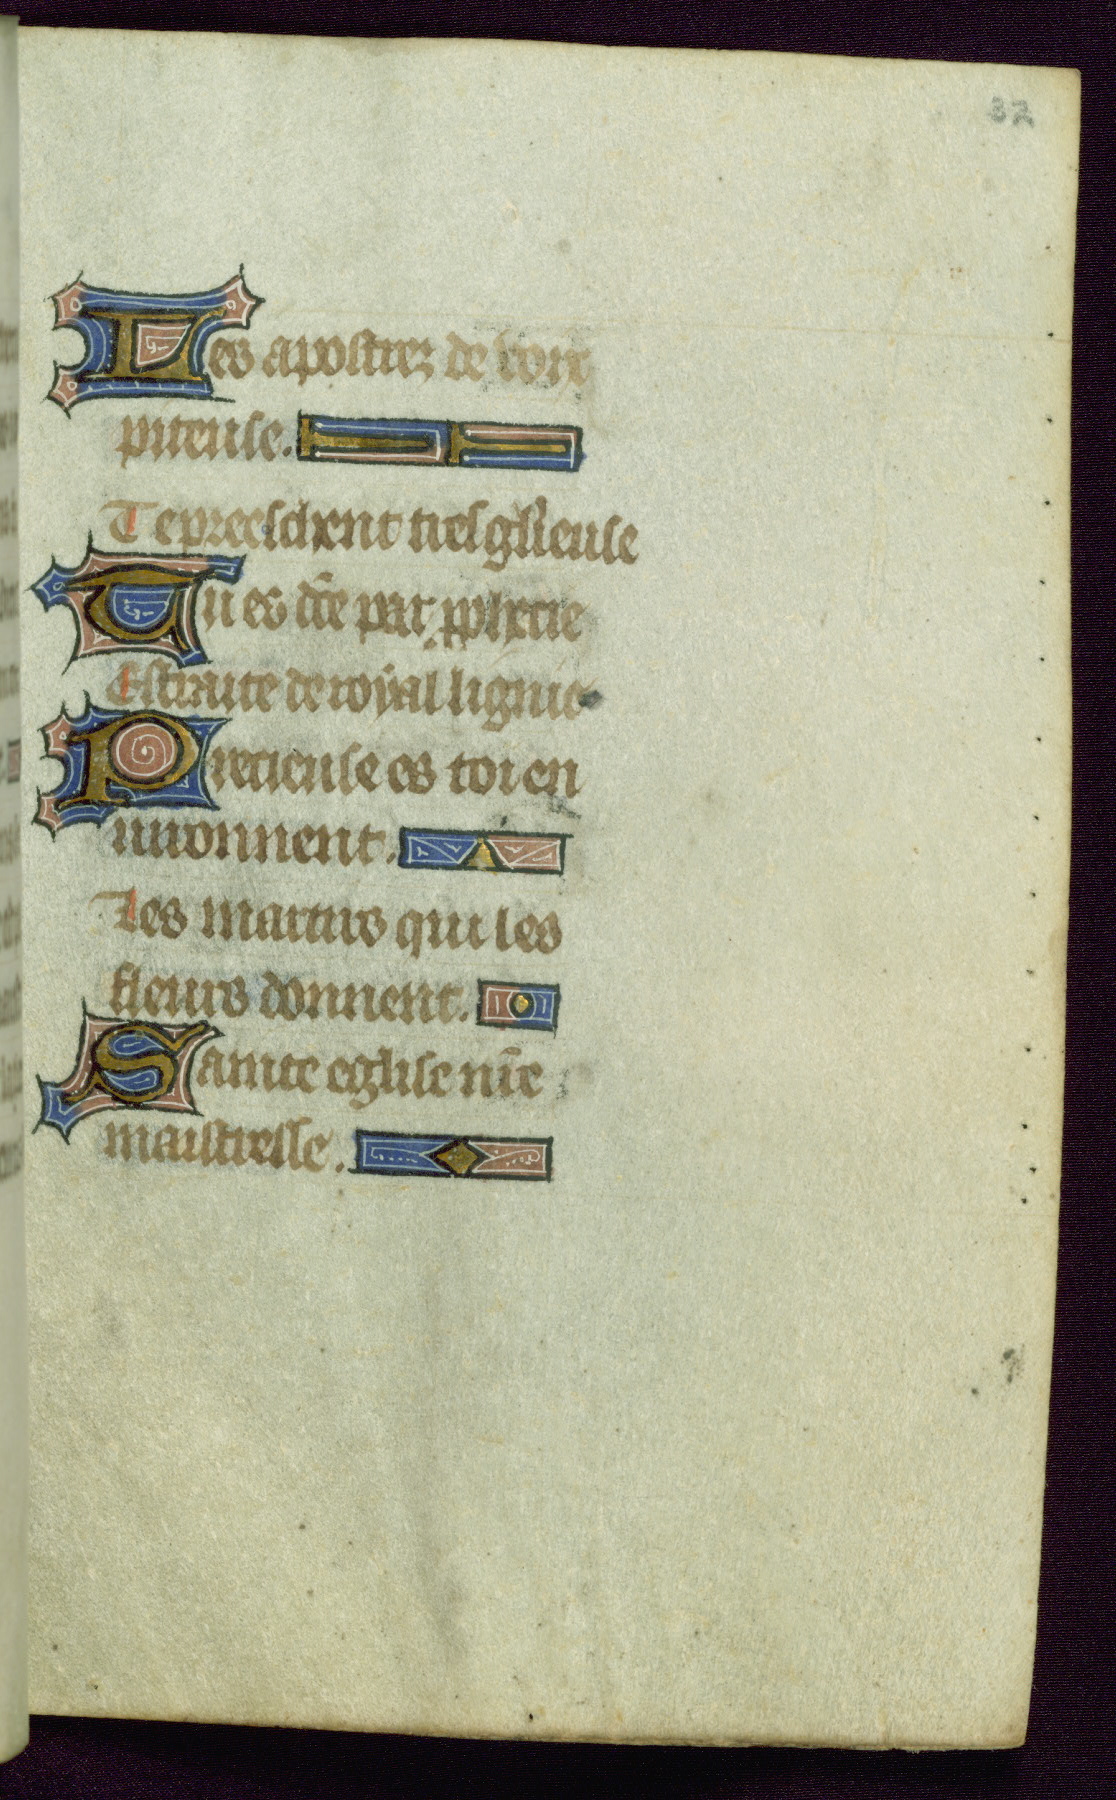 32
Les apostrez de voix
piteuse.
Te preeschent tres gl'ieuse
Tu es dc̄e par pphecie
Estraite de royal lignie
Precieuse es toi en
uironnent.
Les martirs qui les
fleurs donnent.
Sainte eglise nr̄e
maistresse.